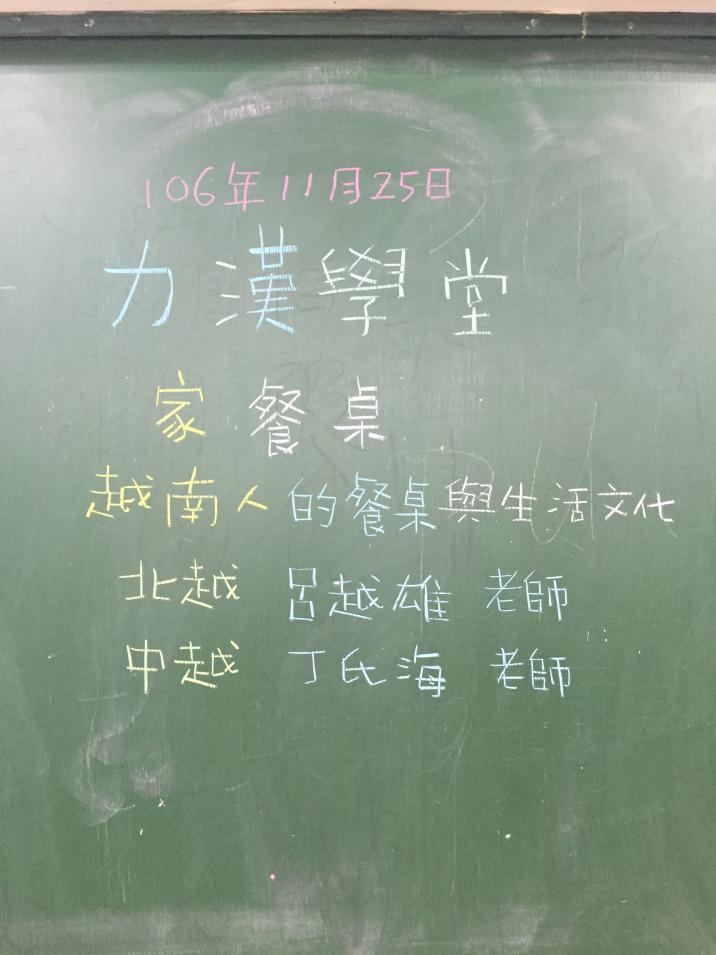 106年11月25日
力漢學堂
家餐桌
越南人的餐桌與生活文化
北越 呂越雄 老師
中越 丁氏海 老師